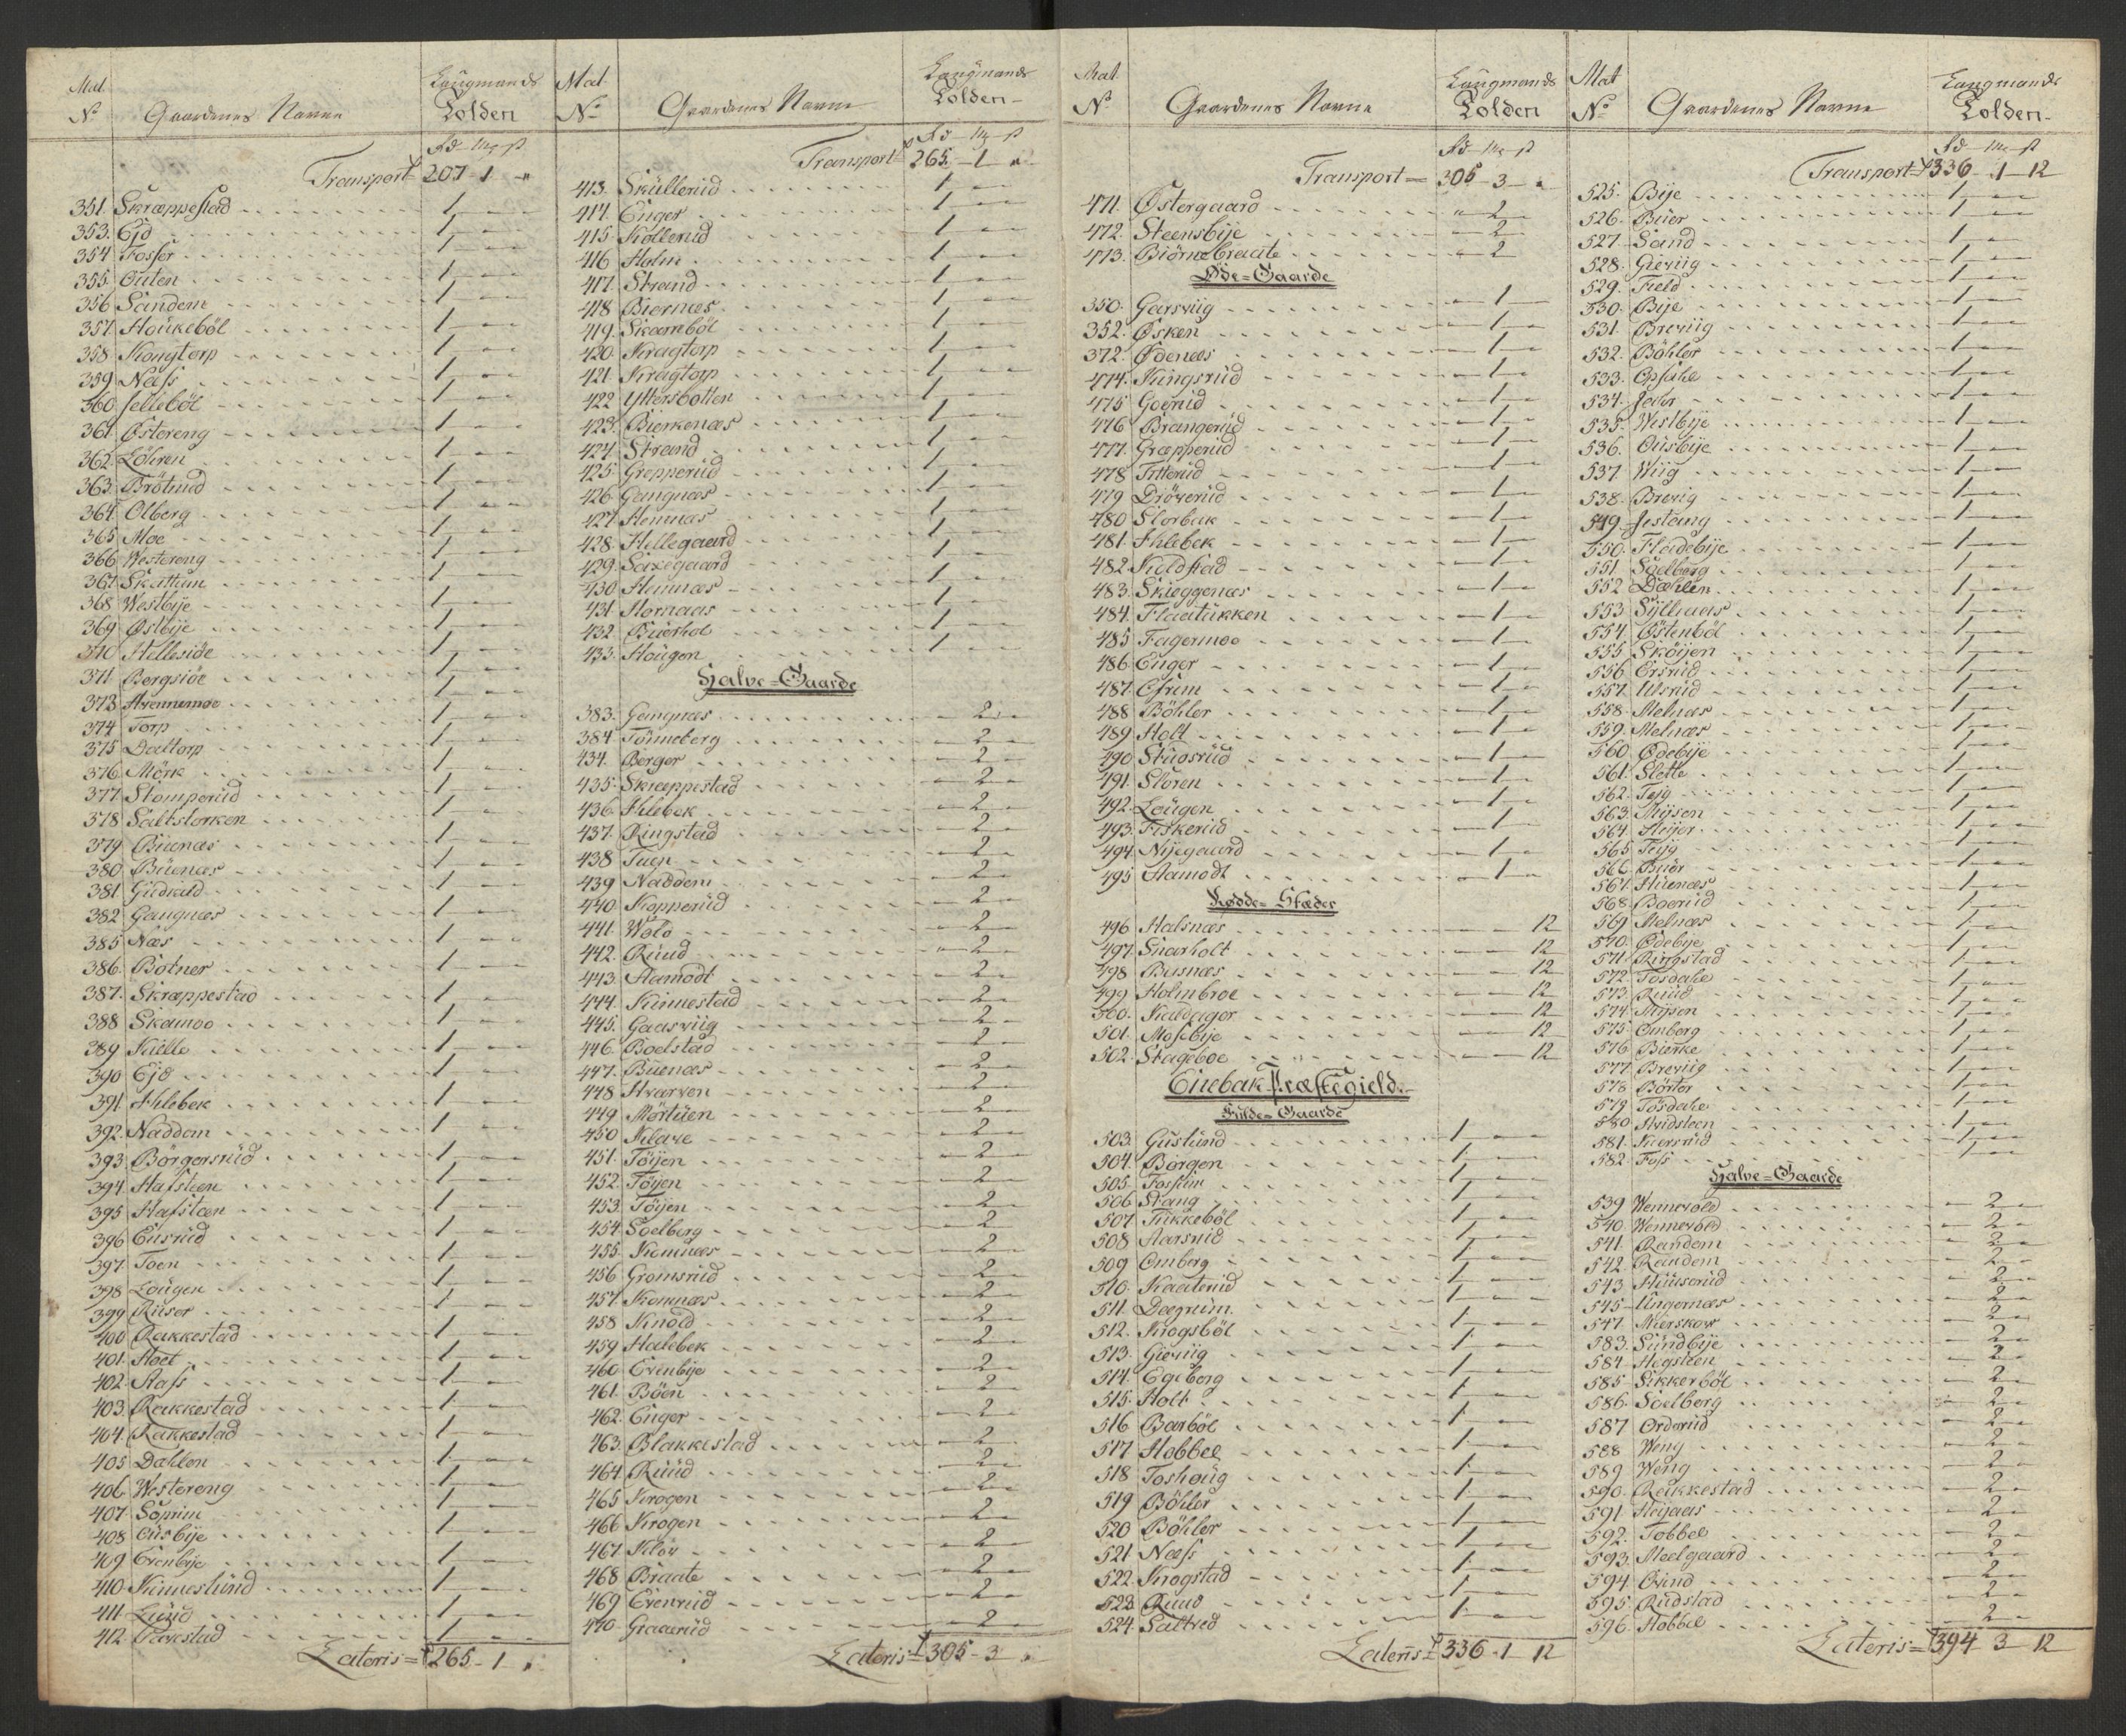 Mat. Laugmands
No Gaardenes Navne Tolden
Rd - Mg - ß
Transport 207 - 1 - "
351. Skræppestad 1 - -
353. Ejd 1 - -
354 Fosser 1 - -
355 Outen 1 - -
356 Sandem 1 - -
357. Houkeböl 1 - -
358 Kongtorp 1 - -
359 Næss 1 - -
360 Jelleböl 1 - -
361 Østereng 1 - -
362. Löhren 1 - -
363. Brötrud 1 - -
364. Olberg 1 - -
365 Moe 1 - -
366 Westereng 1 - -
367. Skattum 1 - -
368 Westbye 1 - -
369 Østbye 1 - -
370 Hellesiöe 1 - -
371 Bergsiöe 1 - -
373 Krennemoe 1 - -
374 Torp 1 - -
375 Daltorp 1 - -
376 Mörk 1 - -
377 Stomperud 1 - -
378 Saltstorken 1 - -
379 Buenæs 1 - -
380 Buenæs 1 - -
381 Gudiald 1 - -
382 Gangnæs 1 - -
385 Næs 1 - -
386. Botner 1 - -
387. Skræppestad 1 - -
388 Skamoe 1 - -
389 Kulle 1 - -
390 Ejd 1 - -
391 Ihlebek 1 - -
392. Naddem 1 - -
393 Börgersrud 1 - -
394 Hafsteen 1 - -
395 Hafsteen 1 - -
396 Eusrud 1 - -
397. Toen 1 - -
398 Lougen 1 - -
399 Ruser 1 - -
400 Rakkestad 1 - -
401. Hoel 1 - -
402 Aass 1 - -
403. Rakkestad 1 - -
404. Rakkestad 1 - -
405 Dahlen 1 - -
406 Westereng 1 - -
407. Soprim 1 - -
408 Ousbye 1 - -
409 Evenbye 1 - -
410 Kinneslund 1 - -
411 Lund 1 - -
412. Taraldstad 1 - -
Lateris = 265 - 1 "
Mat. Laugmands
No Gaardenes Navne Tolden -
Rd - Mg - ß
Transport 265 - 1 "
413. Skullerud 1 - -
414. Enger 1 - -
415. Kollerud 1 - -
416 Holm 1 - -
417. Strand 1 - -
418 Biernæs 1 - -
419. Skamböl 1 - -
420. Kragtorp 1 - -
421 Kragtorp 1 - -
422 Yttersbotten 1 - -
423. Bierkenæs 1 - -
424 Strand 1 - -
425. Grepperud 1 - -
426. Gangnæs 1 - -
427 Hemnæs 1 - -
428. Hellegaard 1 - -
429. Saxegaard 1 - -
430 Hemnæs 1 - -
431. Hornaas 1 - -
432 Buerhol 1 - -
433. Hougen 1 - -
Halve = Gaarde
383. Gangnæs - 2 -
384 Tönneberg - 2 -
434. Berger - 2 -
435. Skræppestad - 2 -
436. Ihlebek - 2 -
437. Ringstad - 2 -
438 Tuen - 2 -
439 Naddem - 2 -
440 Kopperud - 2 -
441. Wolo - 2 -
442. Ruud - 2 -
443. Aamodt - 2 -
444. Kinnestad - 2 -
445. Gaasviig - 2 -
446. Boelstad - 2 -
447. Buenæs - 2 -
448 Hvarven - 2 -
449 Mörtuen - 2 -
450 Klare - 2 -
451. Töyen - 2 -
452. Töyen - 2 -
453. Töyen - 2 -
454. Soelberg - 2 -
455. Komnæs - 2 -
456 Gromsrud - 2 -
457. Komnæs - 2 -
458 Knold - 2 -
459 Halebek - 2 -
460 Evenbye - 2 -
461. Böen - 2 -
462. Enger - 2 -
463. Blakkestad - 2 -
464. Ruud - 2 -
465 Krogen - 2 -
466 Krogen - 2 -
467 Klöv - 2 -
468 Braate - 2 -
469 Evenrud - 2 -
470. Graarud - 2 -
Lateris = 305 - 3 "
Mat. Laugmands
No Gaardenes Navne Tolden
Rd - Mg - ß
Transport = 305 - 3 - "
471. Østergaard " 2 -
472. Steensbye - 2 -
473. Biörnebraate - 2
Øde = Gaarde
350. Garsviig - 1 -
352. Øsken - 1 -
372. Ødenæs - 1 -
474. Kungsrud - 1 -
475 Goerud - 1 -
476 Brangerud - 1 -
477. Græpperud - 1 -
478 Titterud - 1 -
479 Dröverud - 1 -
480 Storbak - 1 -
481. Ihlebek - 1 -
482 Kieldstad - 1 -
483. Skieggenæs - 1 -
484. Flaatukken - 1 -
485 Fagermoe - 1 -
486. Enger - 1 -
487. Efrim - 1 -
488 Böhler - 1 -
489 Holt - 1 -
490 Studsrud - 1 -
491. Storen - 1 -
492. Lougen - 1 -
493. Fiskerud - 1 -
494. Nyegaard - 1 -
495 Aamodt - 1 -
Rødde = Stæder
496 Halsnæs - - 12
497 Snarholt - - 12
498 Busnæs - - 12
499 Holmbroe - - 12
500. Kaldager - - 12
501. Mosebye - - 12
502. Stageboe - - 12
Enebak Præstegield.
Fulde = Gaarde
503. Guslund 1 - -
504. Borgen 1 - -
505. Fossum 1 - -
506 Stang 1 - -
507. Tukkeböl 1 - -
508 Aarsrud 1 - -
509 Omberg 1 - -
510. Kaaterud 1 - -
511. Dægrum 1 - -
512. Krogsböl 1 - -
513. Gieviig 1 - -
514. Egeberg 1 - -
515. Holt 1 - -
516 Barböl 1 - -
517 Hobbel 1 - -
518 Toshoug 1 - -
519 Böhler 1 - -
520 Böhler 1 - -
521 Næss 1 - -
522. Krogstad 1 - -
523 Ruud 1 - -
524. Saltved 1 - -
Lateris = 336 - 1 - 12
Mat Laugmands
No Gaardenes Navne Tolden -
Rd - Mg - ß
Transport 336 - 1 - 12
525. Bye 1 - -
526. Buer 1 - -
527. Sand 1 - -
528. Gieviig 1 - -
529. Field 1 - -
530. Bye 1 - -
531. Breviig 1 - -
532. Böhler 1 - -
533. Opsahl 1 - -
534. Jahr 1 - -
535. Westbye 1 - -
536. Ousbye 1 - -
537. Wiig 1 - -
538. Brevig 1 - -
549 Jestang 1 - -
550. Fladebye 1 - -
551 Soelberg 1 - -
552 Dæhlen 1 - -
553 Syllnaas 1 - -
554. Østenböl 1 - -
555 Sköyen 1 - -
556. Ersrud 1 - -
557. Ulsrud 1 - -
558. Melnæs 1 - -
559. Melnæs 1 - -
560. Ødebye 1 - -
561. Slette 1 - -
562. Teig 1 - -
563. Mysen 1 - -
564. Heyer 1 - -
565 Teyg 1 - -
566. Buer 1 - -
567. Huenæs 1 - -
568. Boerud 1 - -
569 Melnæs 1 - -
570. Ødebye 1 - -
571. Ringstad 1 - -
572. Tosdahl 1 - -
573. Ruud 1 - -
574. Mysen 1 - -
575. Omberg 1 - -
576 Bierke 1 - -
577 Breviig 1 - -
578 Börter 1 - -
579 Tosdahl 1 - -
580 Hvidsteen 1 - -
581. Kiersrud 1 - -
582. Foss 1 - -
Halve = Gaarde
539 Wennevold - 2 -
540 Wennevold - 2 -
541. Randem - 2 -
542. Randem - 2 -
543 Huuserud - 2 -
545 Ungernæs - 2 -
547 Nierskow - 2 -
583. Sundbye - 2 -
584 Hogsteen - 2 -
585 Sikkerböl - 2 -
586. Soelberg - 2 -
587 Orderud - 2 -
588 Weng - 2 -
589 Weng - 2 -
590. Rakkestad - 2 -
591 Heyaas - 2 -
592. Tobbel - 2 -
593. Meelgaard - 2 -
594 Qvind - 2 -
595. Rudstad - 2 -
596. Hobbel - 2 -
Lateris = 394 - 3 - 12